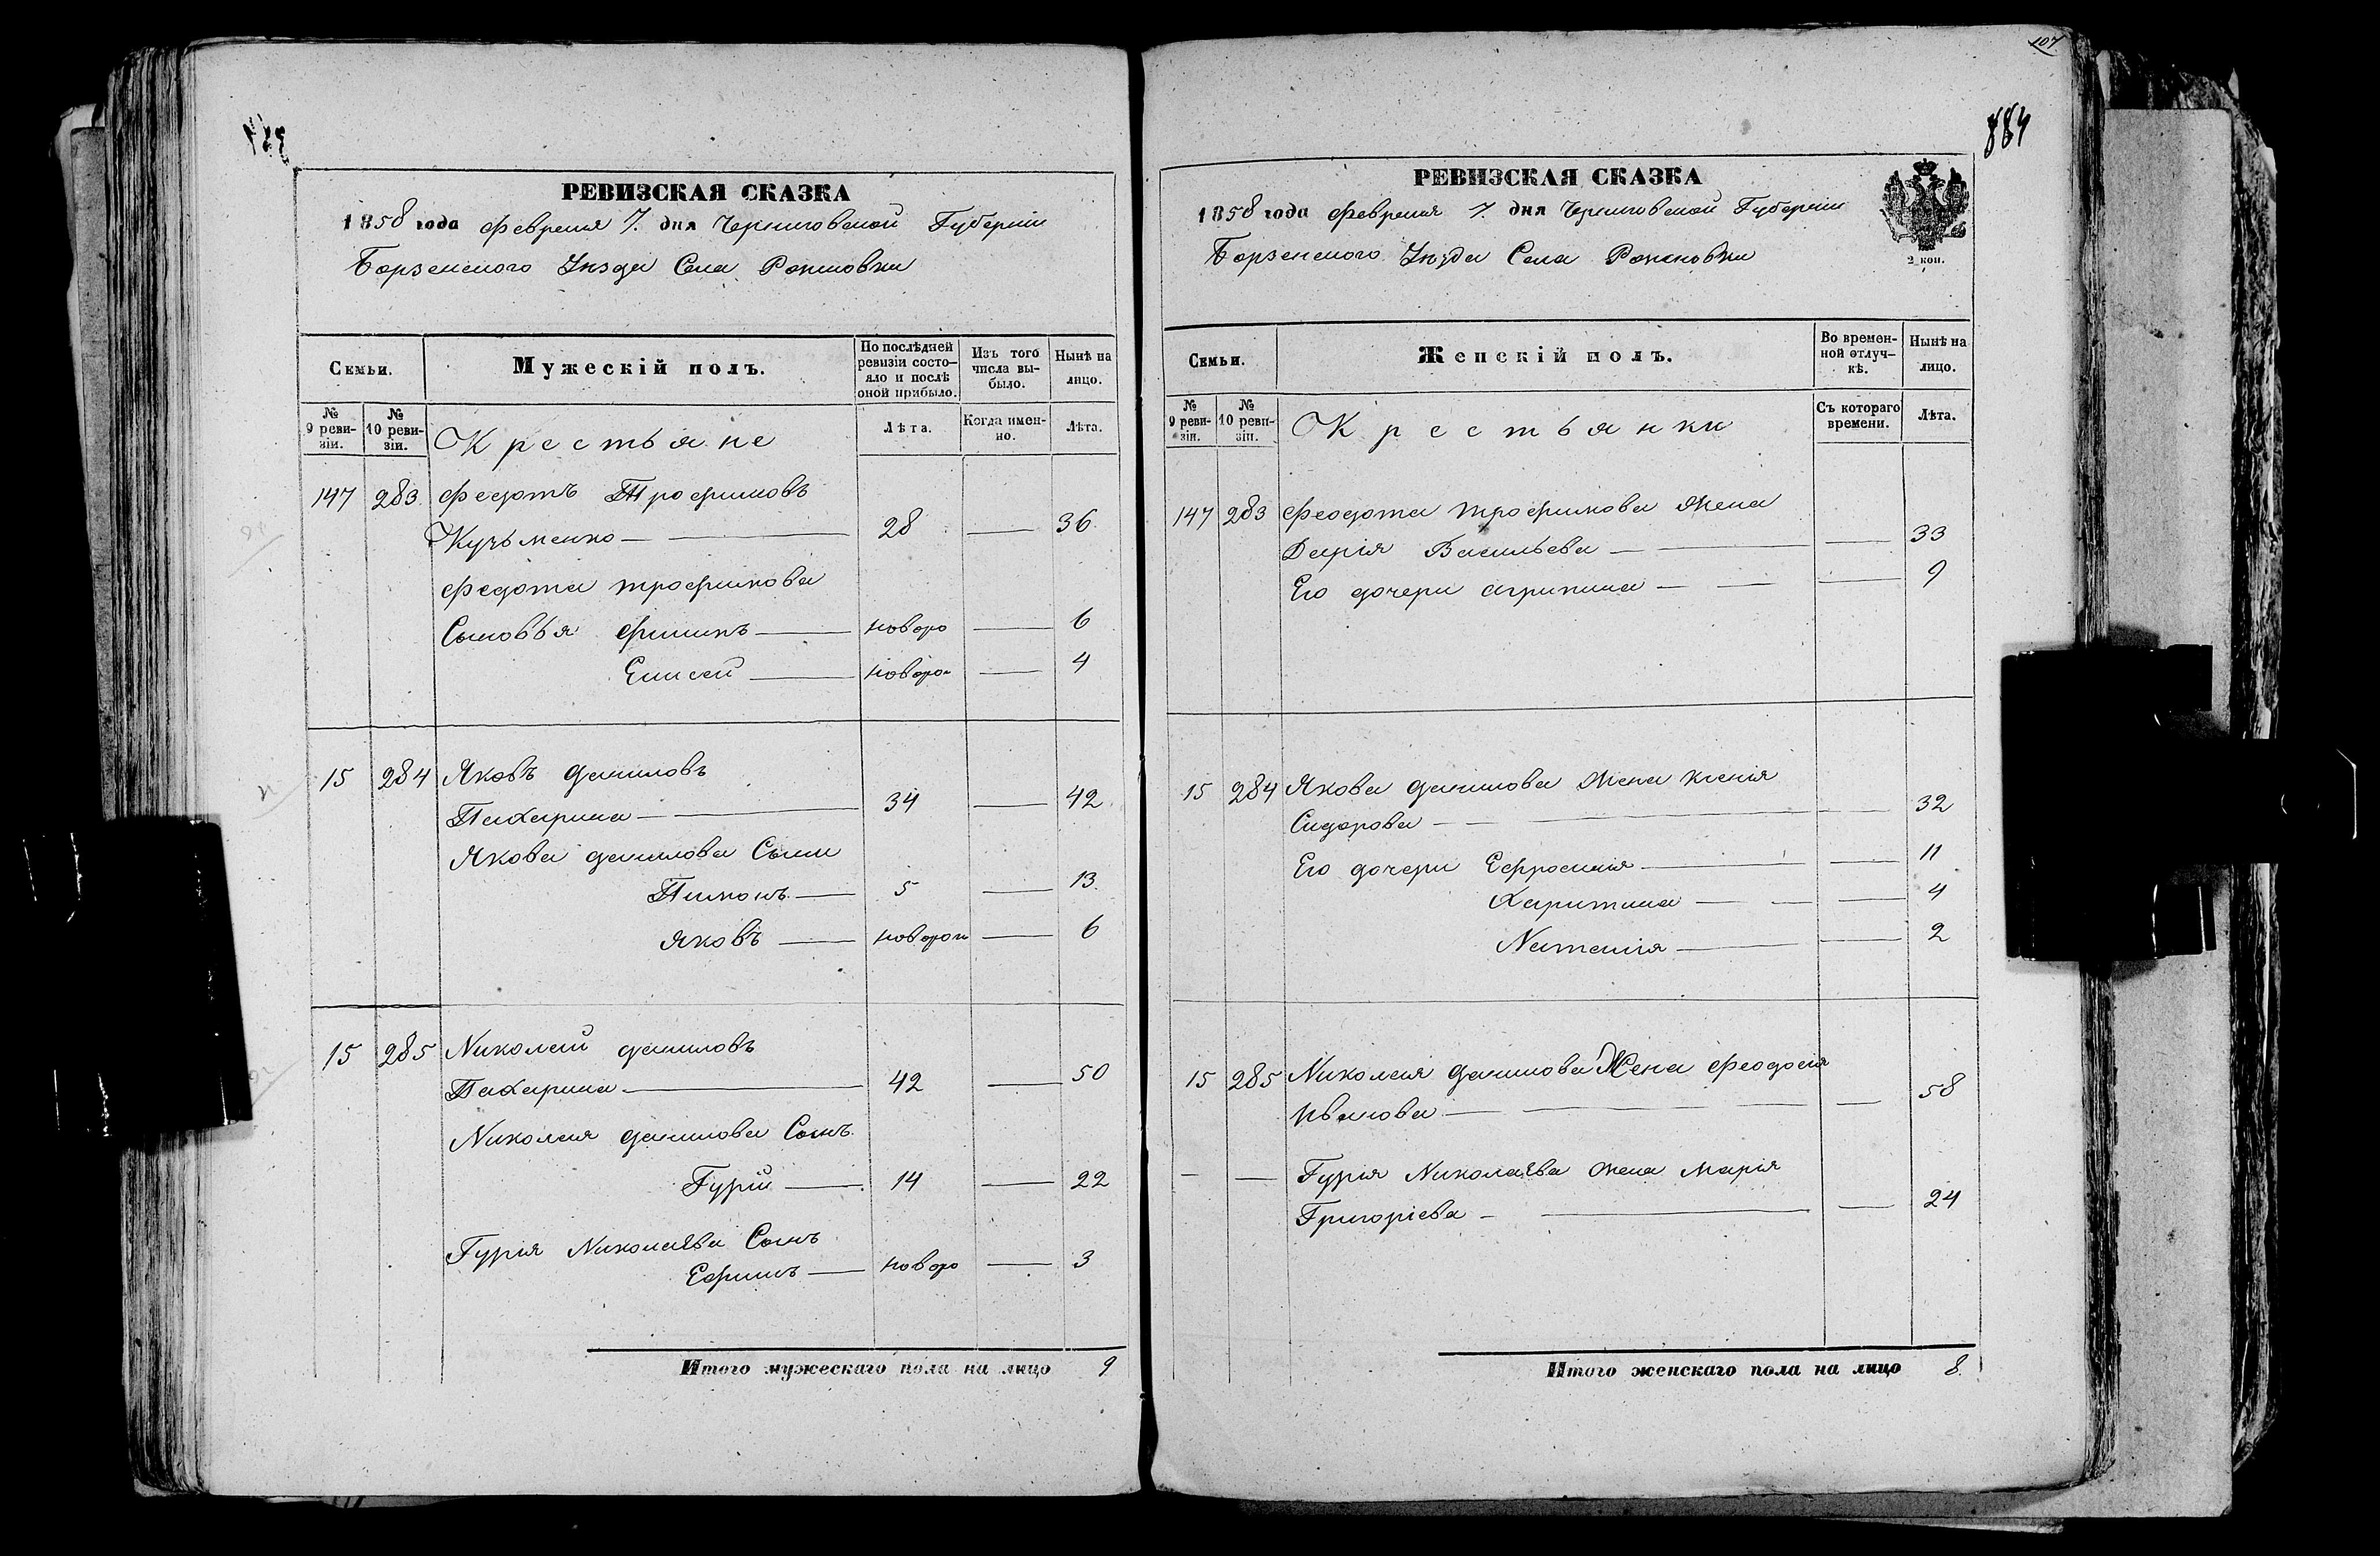 РЕВИЗСКАЯ СКАЗКА
1858 года Февраля 7. дня Черниговской Губерніи
Борзенского Уѣзда Села Рожновки
Семьи.
Мужескій полъ.
По послѣдней ревизіи состо-
яло и послѣ оной прибыло.
Изъ того числа вы-
было.
Нынѣ на лицо.
№ 9 реви-
зіи.
№ 10 реви-
зіи.
Крестьяне
Лѣта.
Когда имен-
но.
Лѣта.
147 283. Федотъ Трофимовъ
Кузьменко — 28 — 36
Федота Трофимова
Сыновья Филипъ — новоро — 6
Елисей — новорож — 4
15 284 Яковъ Даниловъ
Пахарина — 34 — 42
Якова Данилова Сыны
Тимонъ — 5 — 13.
Яковъ — новорож — 6
15 285 Николай Даниловъ
Пахарина — 42 — 50
Николая Данилова Сынъ
Гурій — 14 — 22
Гурія Николаева Сынъ
Ефимъ — новоро — 3
Итого мужескаго пола на лицо 9
107
884
РЕВИЗСКАЯ СКАЗКА
1858 года Февраля 7. дня Черниговской Губерніи
Борзенского Уѣзда Села Рожновки
2 коп.
Семьи.
Женскій полъ.
Во времен-
ной отлуч-
кѣ.
Нынѣ на лицо.
№ 9 реви-
зіи.
№ 10 реви-
зіи.
Крестьянки
Съ котораго времени.
Лѣта.
147 283 Феодота Трофимова Жена
Дарія Васильева — — 33
Его дочери Агрипина — — 9
15 284 Якова Данилова Жена Ксенія
Сидорова — — 32
Его дочери Ефросинія — — 11
Харитина — — 4
Наталія — — 2
15 285 Николая Данилова Жена Феодосія
Иванова — — 58
— — Гурія Николаева жена Марія
Григоріева — — 24
Итого женскаго пола на лицо 8.